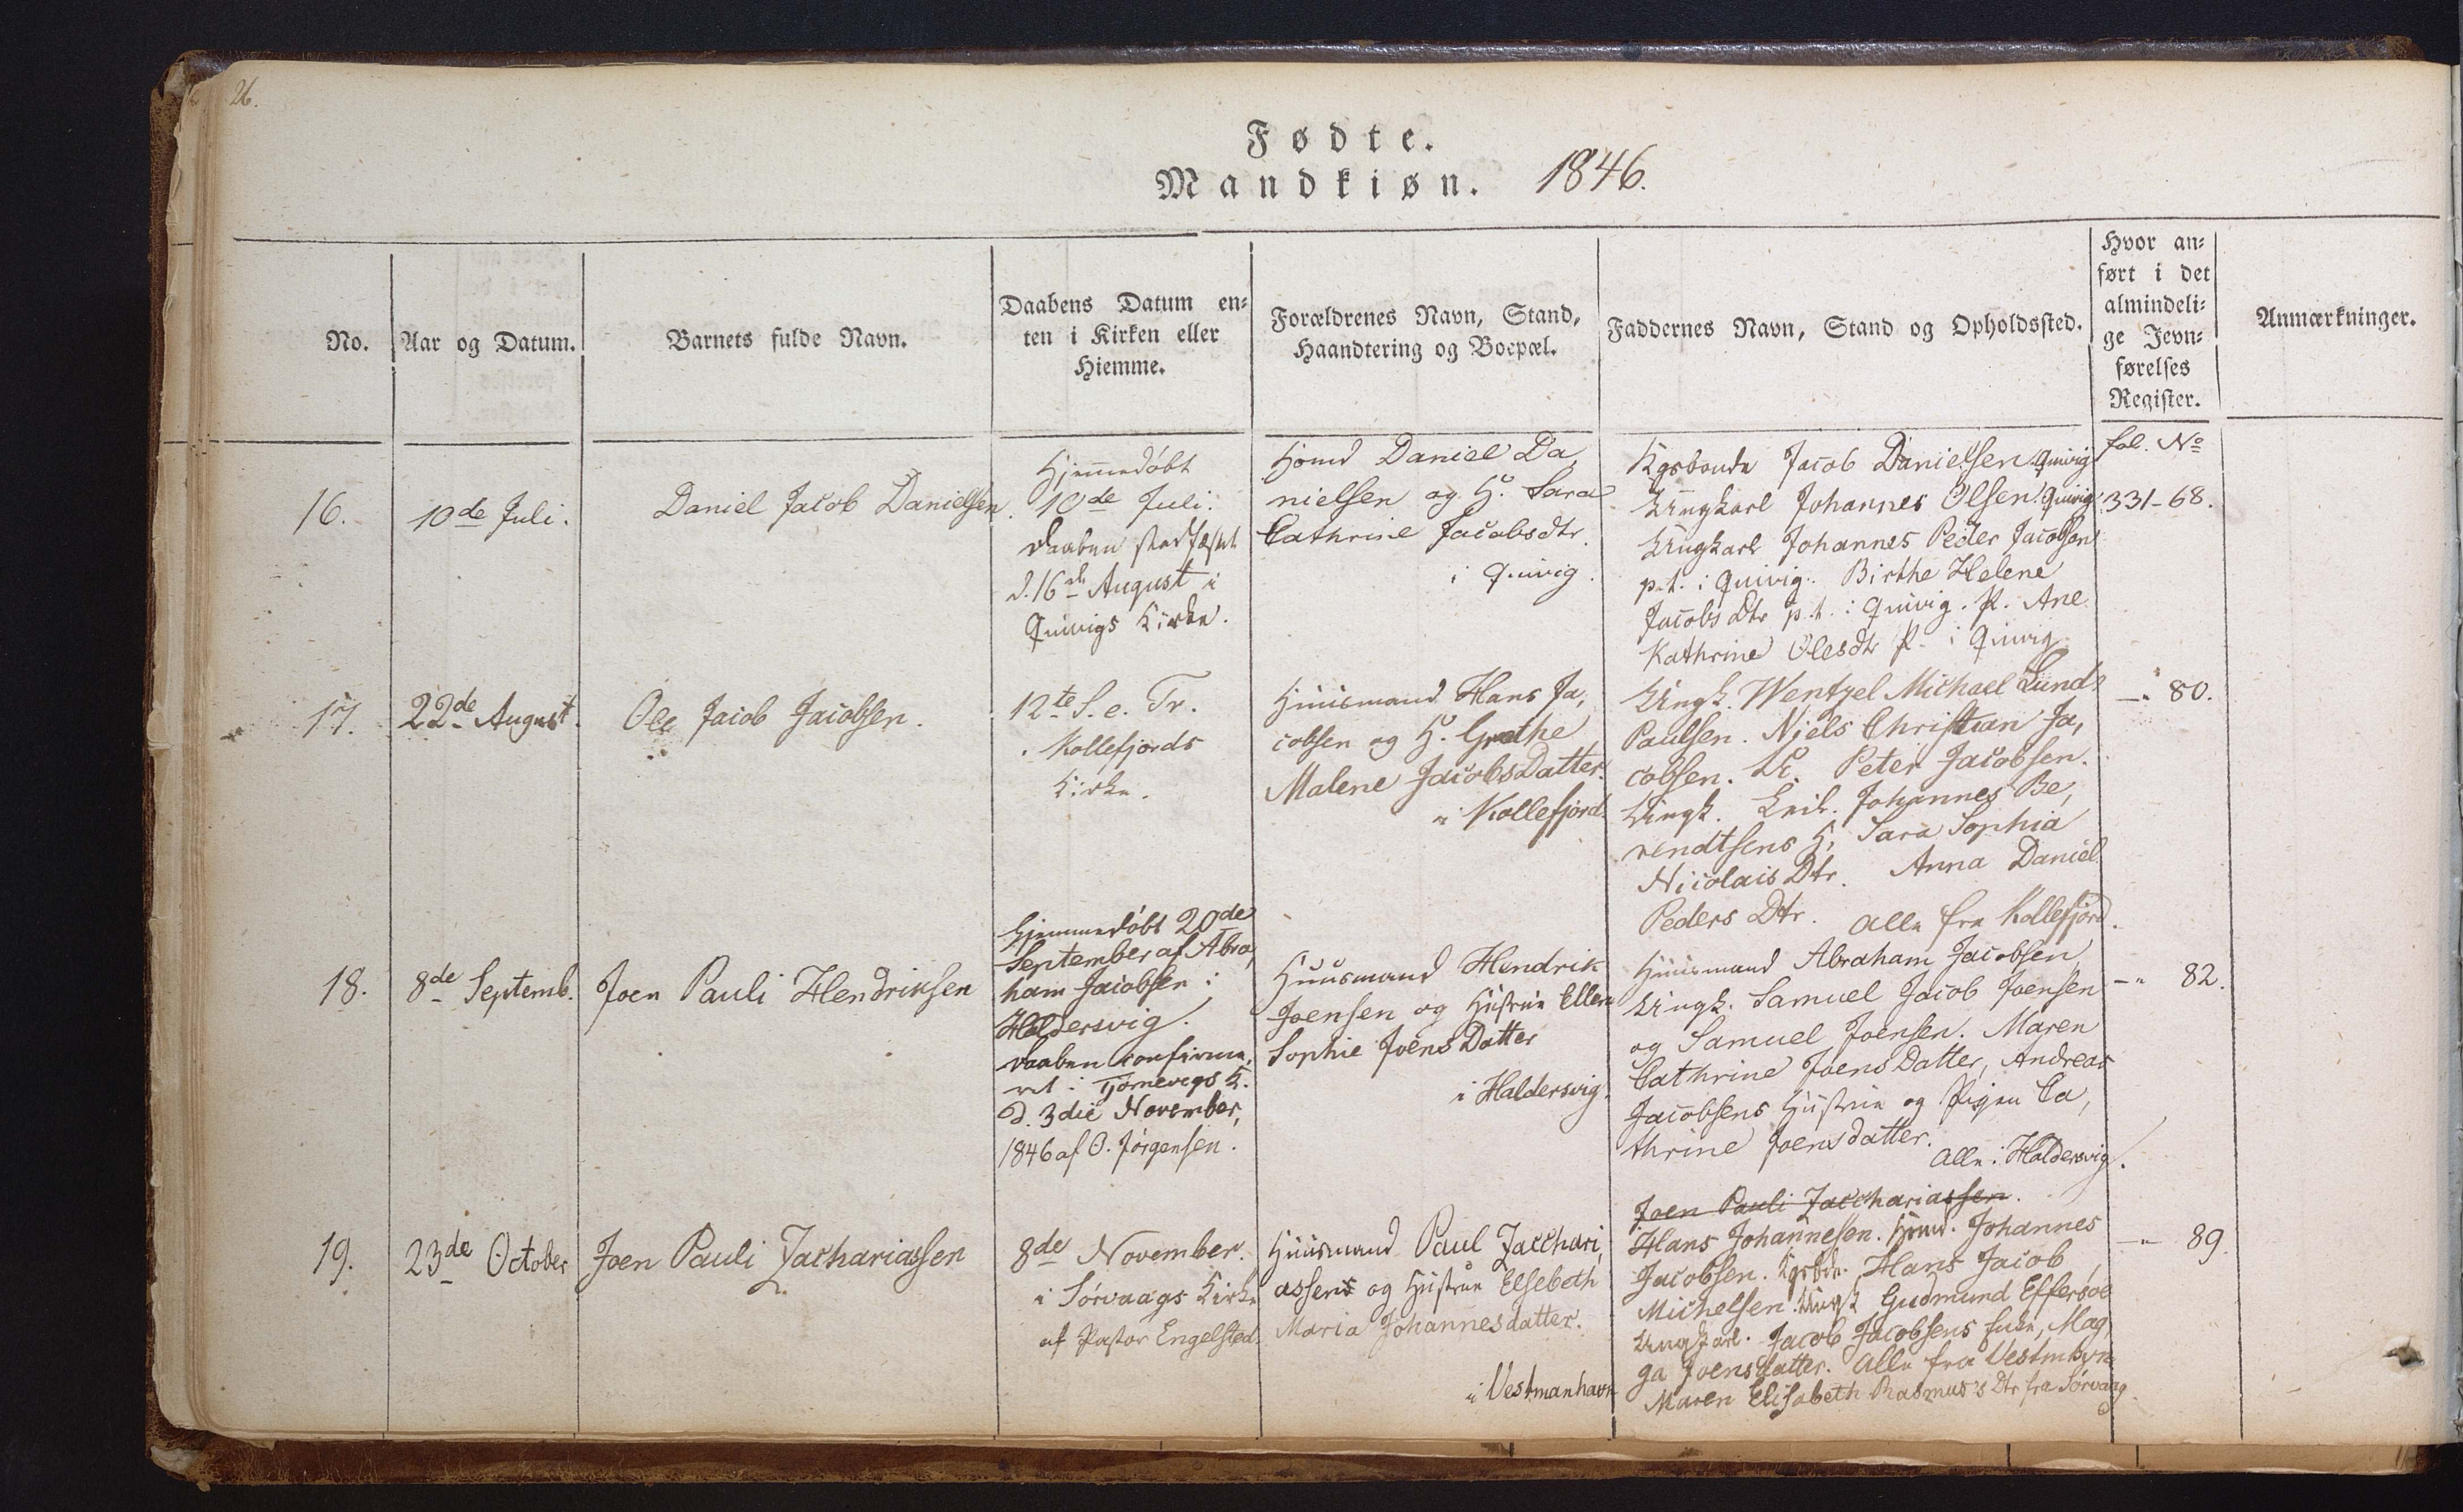 26.
Fødte.
Mandkiøn. 1846.
No.
Aar og Datum.
Barnets fulde Navn.
Daabens Datum en-
ten i Kirken eller
Hiemme.
Forældrenes Navn, Stand,
Haandtering og Boepæl.
Faddernes Navn, Stand og Opholdssted.
Hvor an-
ført i det
almindeli-
ge Jevn-
førelses
Register.
Anmærkninger.
16.
10de Juli.
Daniel Jacob Danielsen.
Hjemmedöbt
10de Juli.
Daaben stadfæstet
d. 16de August i
Quivigs Kirke.
Hsmd Daniel Da,
nielsen og H. Sara
Cathrine Jacobsdtr.
i Quivig.
Kgsbonde Jacob Danielsen Quivig
Ungkarl Johannes Olsen Quivig
Ungkarl Johannes Peder Jacobsen
p.t. i Quivig. Birthe Helene
Jacobs Dtr p.t. i Quivig. P. Ane
Kathrine Olesdtr P. i Quivig.
fol. No
331-68.
17.
22de August.
Ole Jacob Jacobsen.
12te S. e. Tr.
i Kollefjords
Kirke.
Huusmand Hans Ja,
cobsen og H. Grethe
Malene JacobsDatter.
i Kollefjord.
Ungk. Wentzel Michael Lund
Paulsen. Niels Christian Ja,
cobsen. U. Peter Jacobsen.
Ungk. Leil. Johannes Be,
rendtsens H, Sara Sophia
Nicolais Dtr. Anna Daniel
Peders Dtr. alle fra Kollefjord.
-„ 80.
18.
8de Septemb.
Joen Pauli Hendriksen
Hjemmedöbt 20de
September af Abra,
ham Jacobsen i
Haldersvig.
Daaben confirme,
ret i Tjörnevigs K.
d. 3die November,
1846 af O. Jörgensen.
Huusmand Hendrik
Joensen og Hustrue Ellen
Sophie Joens Datter
i Haldersvig.
Huusmand Abraham Jacobsen
Ungk. Samuel Jacob Joensen
og Samuel Joensen. Maren
Cathrine Joens Datter, Andreas
Jacobsens Hustrue og Pigen Ca,
thrine Joensdatter.
alle i Haldersvig.
-„ 82.
19.
23de October
Joen Pauli Zachariassen
8de November.
i Sörvaags Kirke
af Pastor Engelsted.
Huusmand Paul Zacchari,
assens og Hustrue Elsebeth
Maria Johannesdatter.
i Vestmanhavn
Joen Pauli Zacchariassen.
Hans Johannesen. Hsmd. Johannes
Jacobsen. Kgsbde. Hans Jacob
Michelsen. Ungk Gudmund Effersöe
Ungkarl. Jacob Jacobsens Enke, Mag,
ga Joensdatter. Alle fra Vestmhvn
Maren Elisabeth Rasmus's Dtr fra Sörvaag.
-„ 89.